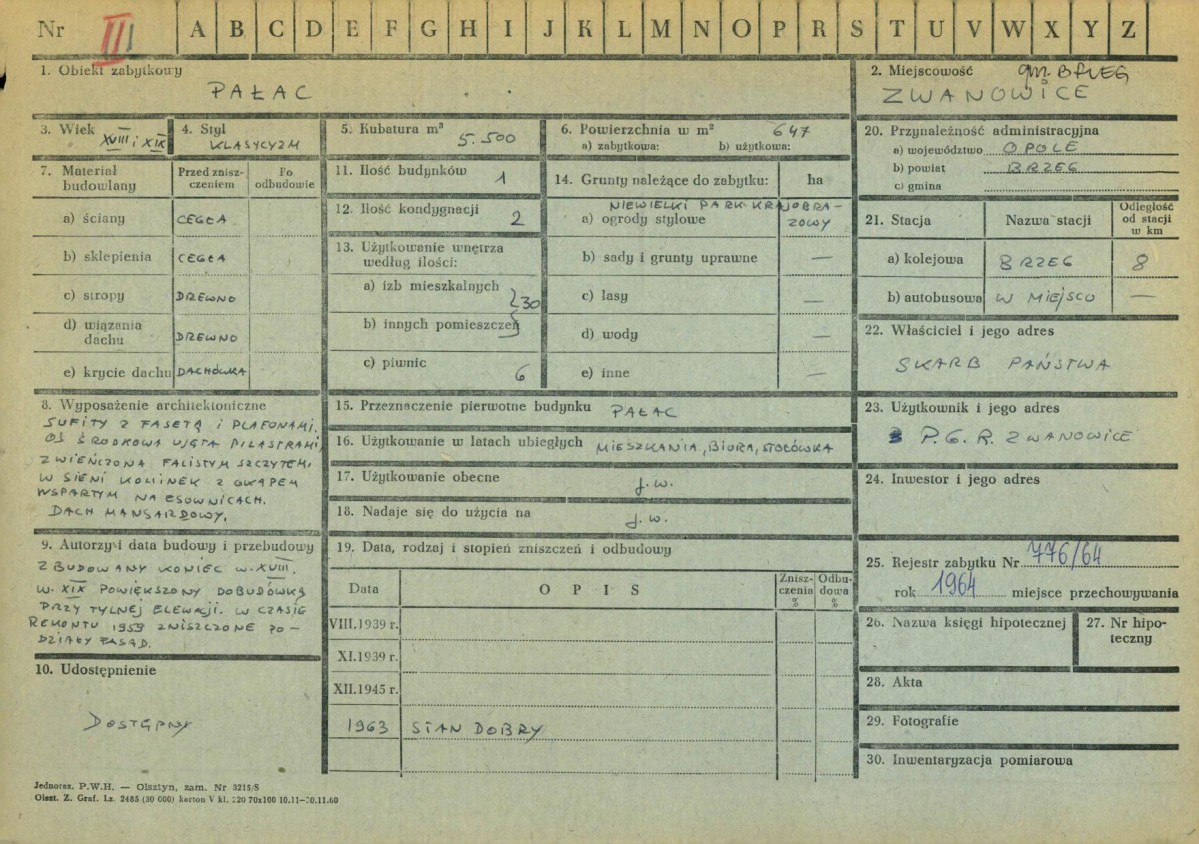 Nr III A B C D E F G H I J K L M N O P R S T U V W X Y Z
1. Obiekt zabytkowy
PAŁAC
2. Miejscowość gm. BRZEG
ZWANOWICE
3. Wiek XVIII i XIX
4. Styl
KLASYCYZM
5. Kubatura m³ 5.500
6. Powierzchnia w m² 647
a) zabytkowa: b) użytkowa:
20. Przynależność administracyjna
a) województwo OPOLE
b) powiat BRZEG
c) gmina
7. Materiał budowlany
Przed zniszczeniem
Po odbudowie
a) ściany CEGŁA
b) sklepienia CEGŁA
c) stropy DREWNO
d) wiązania dachu DREWNO
e) krycie dachu DACHÓWKA
11. Ilość budynków 1
12. Ilość kondygnacji 2
13. Użytkowanie wnętrza
według ilości:
a) izb mieszkalnych
} 30
b) innych pomieszczeń
c) piwnic 6
14. Grunty należące do zabytku: ha
NIEWIELKI PARK KRAJOBRA-
a) ogrody stylowe ZOWY
b) sady i grunty uprawne —
c) lasy —
d) wody —
e) inne —
21. Stacja
Nazwa stacji
Odległość
od stacji
w km
a) kolejowa BRZEG 8
b) autobusowa W MIEJSCU —
22. Właściciel i jego adres
SKARB PAŃSTWA
8. Wyposażenie architektoniczne
SUFITY Z FASETĄ I PLAFONAMI.
OŚ ŚRODKOWA UJĘTA PILASTRAMI,
ZWIEŃCZONA FALISTYM SZCZYTEM.
W SIENI KOMINEK Z OKAPEM
WSPARTYM NA ESOWNICACH.
DACH MANSARDOWY.
15. Przeznaczenie pierwotne budynku PAŁAC
16. Użytkowanie w latach ubiegłych MIESZKANIA, BIURA, STOŁÓWKA
17. Użytkowanie obecne j.w.
18. Nadaje się do użycia na j.w.
23. Użytkownik i jego adres
P.G.R. ZWANOWICE
24. Inwestor i jego adres
9. Autorzy i data budowy i przebudowy
ZBUDOWANY KONIEC W. XVIII.
W. XIX POWIĘKSZONY DOBUDÓWKĄ
PRZY TYLNEJ ELEWACJI. W CZASIE
REMONTU 1959 ZNISZCZONE PO-
DZIAŁY FASAD.
19. Data, rodzaj i stopień zniszczeń i odbudowy
Data
OPIS
Znisz-
czenia
%
Odbu-
dowa
%
VIII.1939 r.
XI.1939 r.
XII.1945 r.
1963 STAN DOBRY
25. Rejestr zabytku Nr 776/64
rok 1964 miejsce przechowywania
26. Nazwa księgi hipotecznej
27. Nr hipo-
teczny
10. Udostępnienie
DOSTĘPNY
28. Akta
29. Fotografie
30. Inwentaryzacja pomiarowa
Jednoraz. P.W.H. — Olsztyn, zam. Nr 3215/S
Olszt. Z. Graf. Lz. 2485 (30 000) karton V kl. 220 70x100 10.11—30.11.60